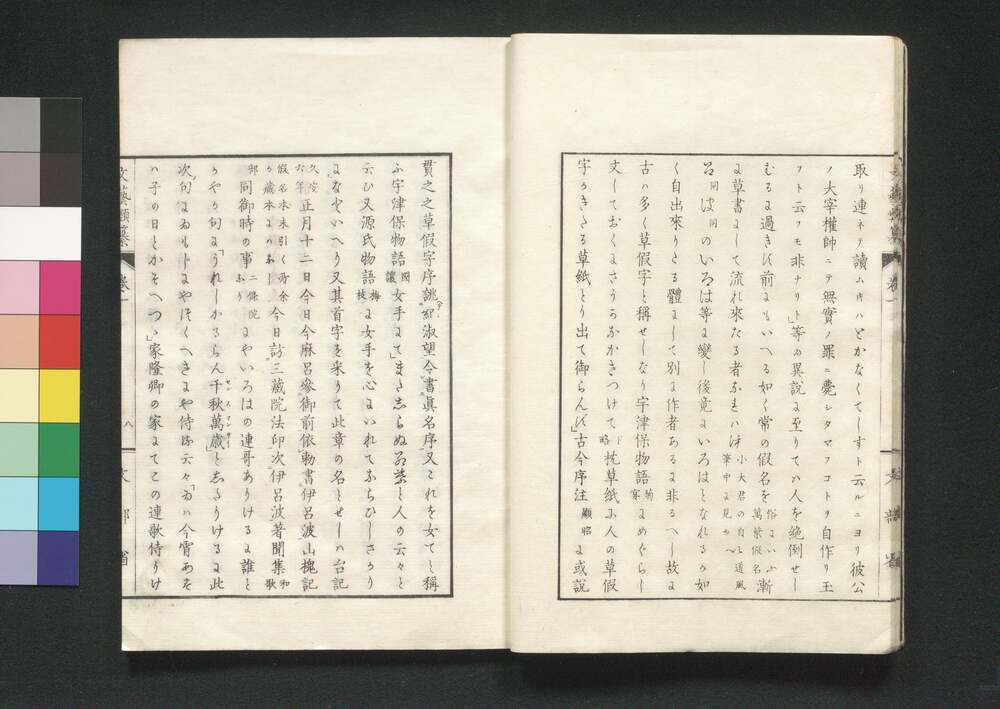 取り連ネテ讀ムキハとかなくてしすト云ルニヨリ彼公
ノ大宰權帥ニテ無實ノ罪ニ薨シタマフコトヲ自作リ玉
フト云フモ非ナリト」等の異說に至りてハ人を絶倒せし
むるに過きに前にもいへる如く常の假名を俗にいふ萬葉假名漸
に草書にして流れ來たる者なれハは小大君の自と道風筆中に見ゆ
呂同は同のいろは等に變し後竟にいろはとなれるか如
く自出來りたる體にして別に作者あるに非るへし故に
古ハ多く草假字と稱せしなり宇津保物語にめくらし
文しておくにさうかなかきつけて下略枕草紙に人の草假
字かきたる草紙とり出て御らんじ」古今序注顯昭に或說
貫之之草假字序誂紀淑望令書眞名序又これを女てと稱
ふ宇津保物語國讓女手にて」またしらぬ人の云々と
云ひ又源氏物語梅枝に女手を心にいれてならひしさかり
になといへり又其首字を采りて此章の名とせしハ台記
久安六年正月十二日今日今麻呂參御前依勅書伊呂波山槐記
假名本末引く所余か藏本になし今日訪三藏院法印次伊呂波著聞集和歌
部同御時の事なり二條院にやいろはの連哥ありけるに誰と
かやか句に「うれしかるらん千秋萬歲」としたりけるに此
次句にゐもしにやはへくへきにや侍る云々「ゐハ今宵あす
ハ子の日とかそへつゝ」家隆卿の家にてこの連歌侍りけ
文藝類纂
卷一
八
文部省